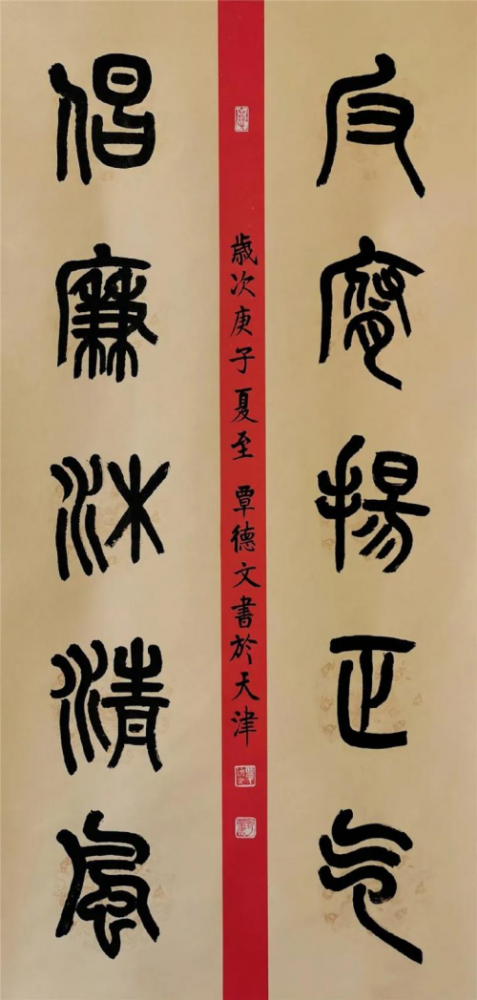 反腐揚正气
倡廉沐清風
歲次庚子夏至 覃德文書於天津